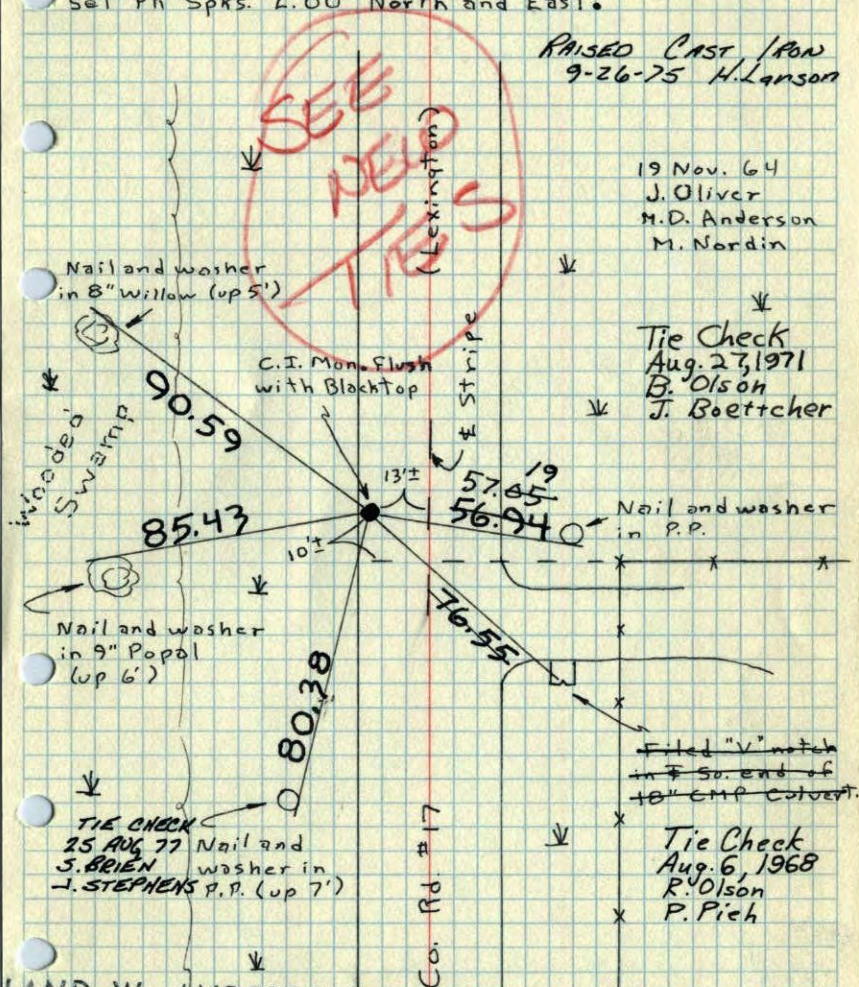 Set PK Spks. 2.00 North and East.
RAISED CAST IRON
9-26-75 H. Lanson
SEE
NEW
TIES
(Lexington)
19 Nov. 64
J. Oliver
M.D. Anderson
M. Nordin
Nail and washer
in 8" Willow (up 5')
Tie Check
Aug. 27, 1971
B. Olson
J. Boettcher
C.I. Mon. Flush
with Blacktop
℄ Stripe
90.59
Wooded
Swamp
13'±
19
57.05
56.94
Nail and washer
in P.P.
85.43
10'±
76.55
Nail and washer
in 9" Popal
(up 6')
80.38
Filed "V" notch
in ℄ So. end of
18" CMP Culvert.
TIE CHECK
25 AUG 77
S. BRIEN
J. STEPHENS
Nail and
washer in
P.P. (up 7')
Co. Rd. #17
Tie Check
Aug. 6, 1968
R. Olson
P. Pieh